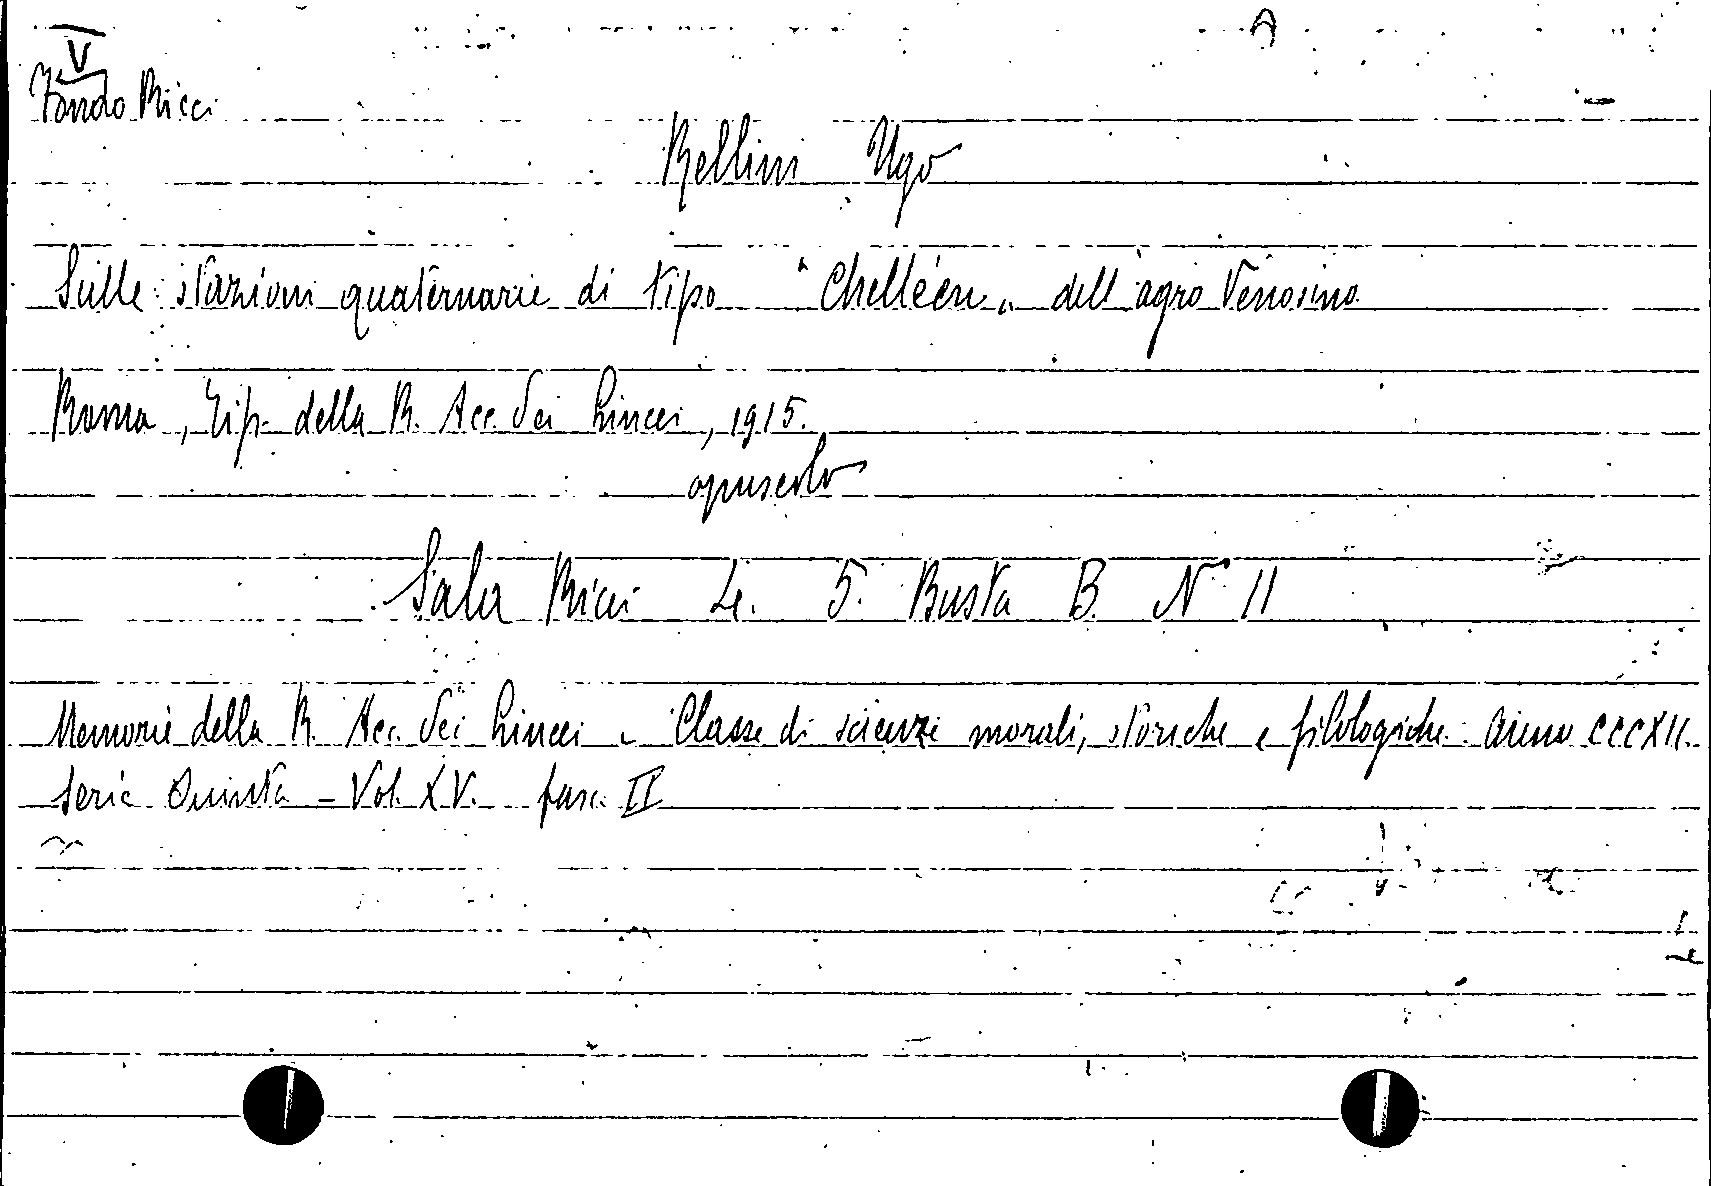 V
Fondo Ricci
Rellini Ugo
Sulle stazioni quaternarie di tipo "Chelléen" dell'agro Venosino
Roma, Tip. della R. Acc. dei Lincei, 1915.
opuscolo
Sala Ricci Le. 5. Busta B. N° 11
Memorie della R. Acc. dei Lincei - Classe di scienze morali, storiche e filologiche. Anno CCCXII.
Serie Quinta - Vol. XV. fasc. II